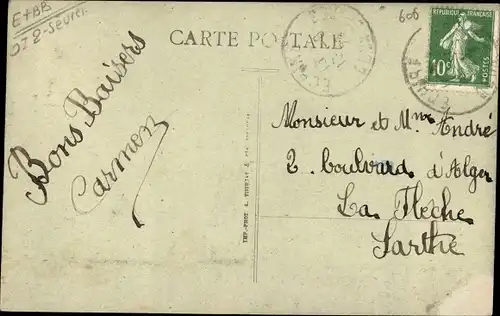 E+BB
DZ 2-Sèvres
CARTE POSTALE
606
RÉPUBLIQUE FRANÇAISE
10c
POSTES
Bons Baisers
Carmen
Monsieur et Mme André
2. boulvard d'Alger
La Fleche
Sarthe